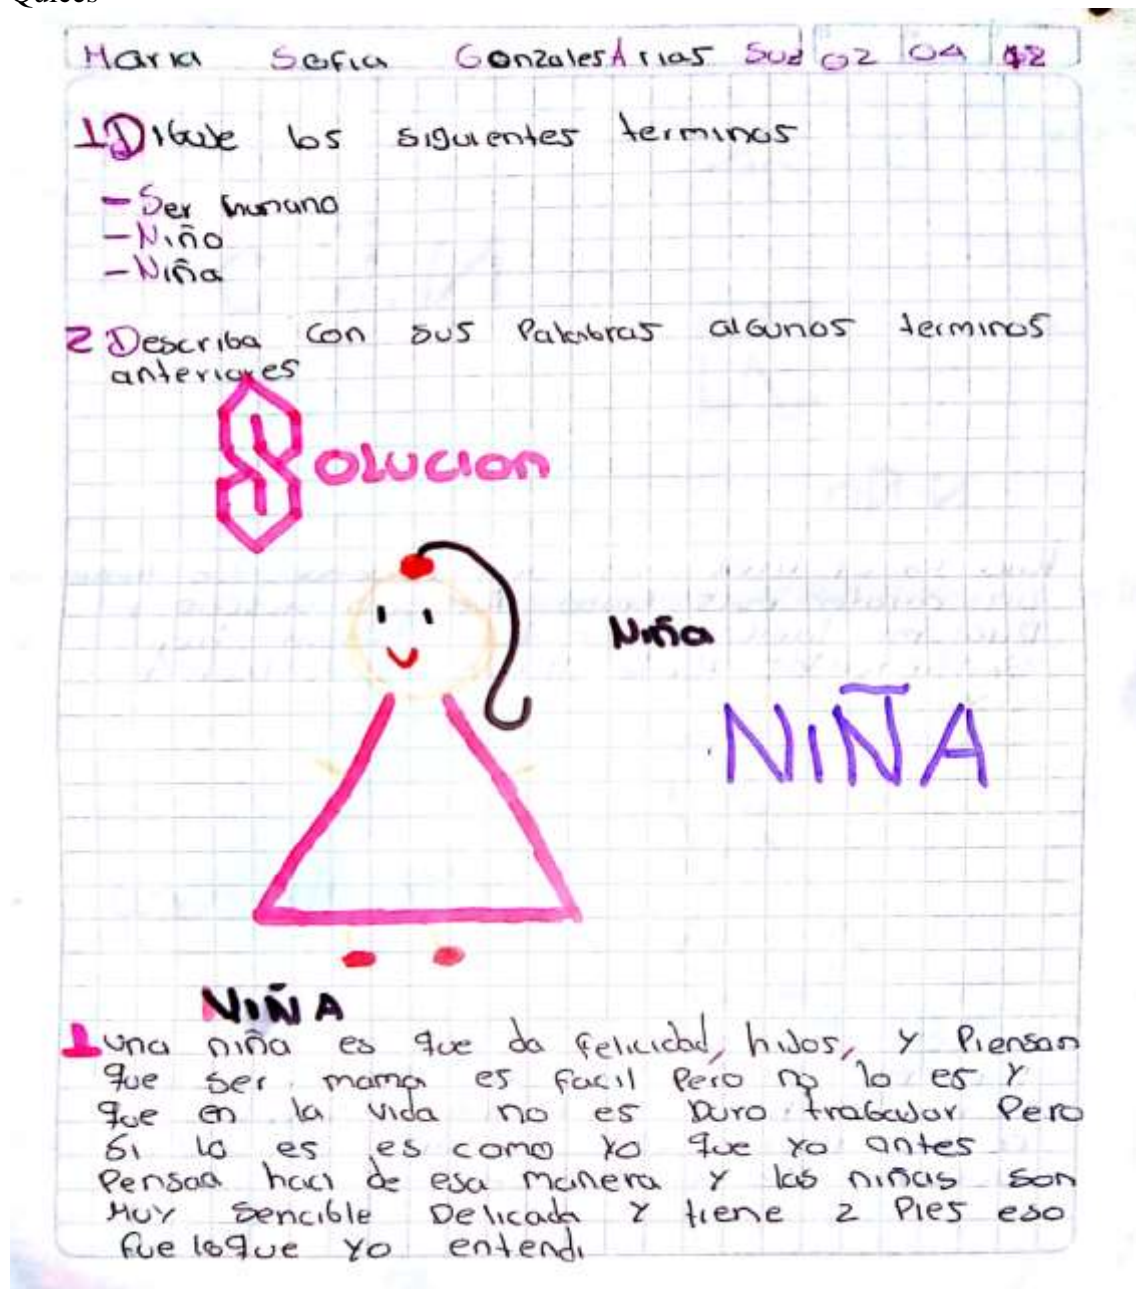 Quices
Maria Sofia Gonzales Arias 02 04
1 Dibuje los siguientes terminos
- Ser humano
- Niño
- Niña
2 Describa con sus Palabras algunos terminos
anteriores
Solucion
Niña
NIÑA
NIÑA
1 una niña es que da felicidad, hijos, y Piensan
que ser mama es facil Pero no lo es y
que en la vida no es Duro trabajar Pero
si lo es es como yo que yo antes
Pensaa haci de esa manera y las niñas son
Muy Sencible Delicada y tiene 2 Pies eso
fue loque yo entendi